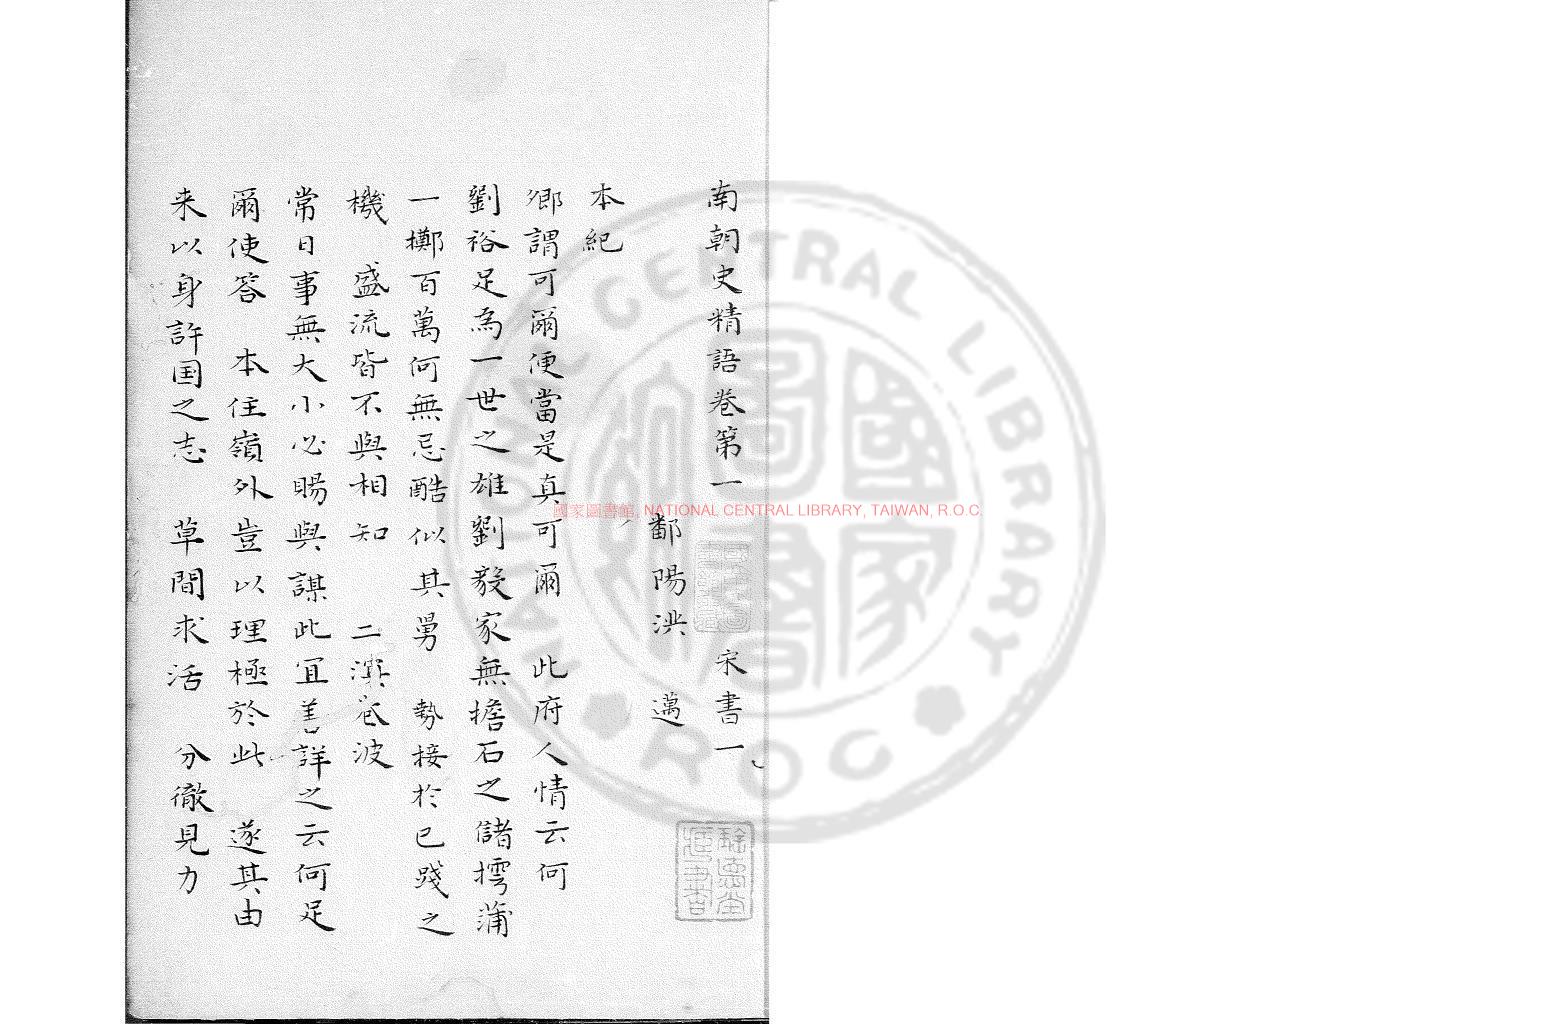 南朝史精語卷第一　宋書一
鄱陽洪　邁
本紀
卿謂可爾便當是真可爾　此府人情云何
劉裕足為一世之雄劉毅家無擔石之儲摴蒲
一擲百萬何無忌酷似其舅　勢接於已踐之
機　盛流皆不與相知　二漢卷波
常日事無大小必賜與謀此宜善詳之云何足
爾使答　本住嶺外豈以理極於此　遂其由
来以身許国之志　草間求活　分徹見力
國家圖書館, NATIONAL CENTRAL LIBRARY, TAIWAN, R.O.C.
NATIONAL CENTRAL LIBRARY ROC